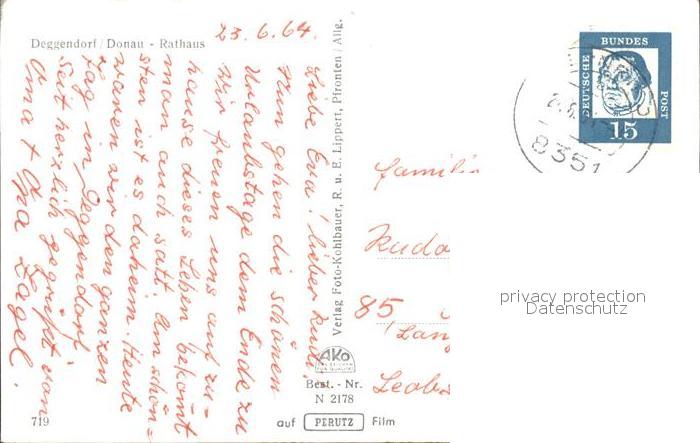 Deggendorf/Donau - Rathaus
23.6.64.
Liebe Eva! lieber Rudi!
Nun gehen die schönen
Urlaubstage dem Ende zu
Wir freuen uns auf zu-
hause dieses Leben bekomt
man auch satt. Am schön-
sten ist es daheim. Heute
waren wir den ganzen
Tag in Deggendorf
Seit herzlich gegrüßt von
Oma + Opa Zagel.
Verlag Foto-Kohlbauer, R. u. E. Lippert, Pfronten/Allg.
AKO
Best.-Nr.
N 2178
719
auf PERUTZ Film
DEUTSCHE
BUNDES
POST
15
8351
Famili
Rudo
85
(Lan
privacy protection
Datenschutz